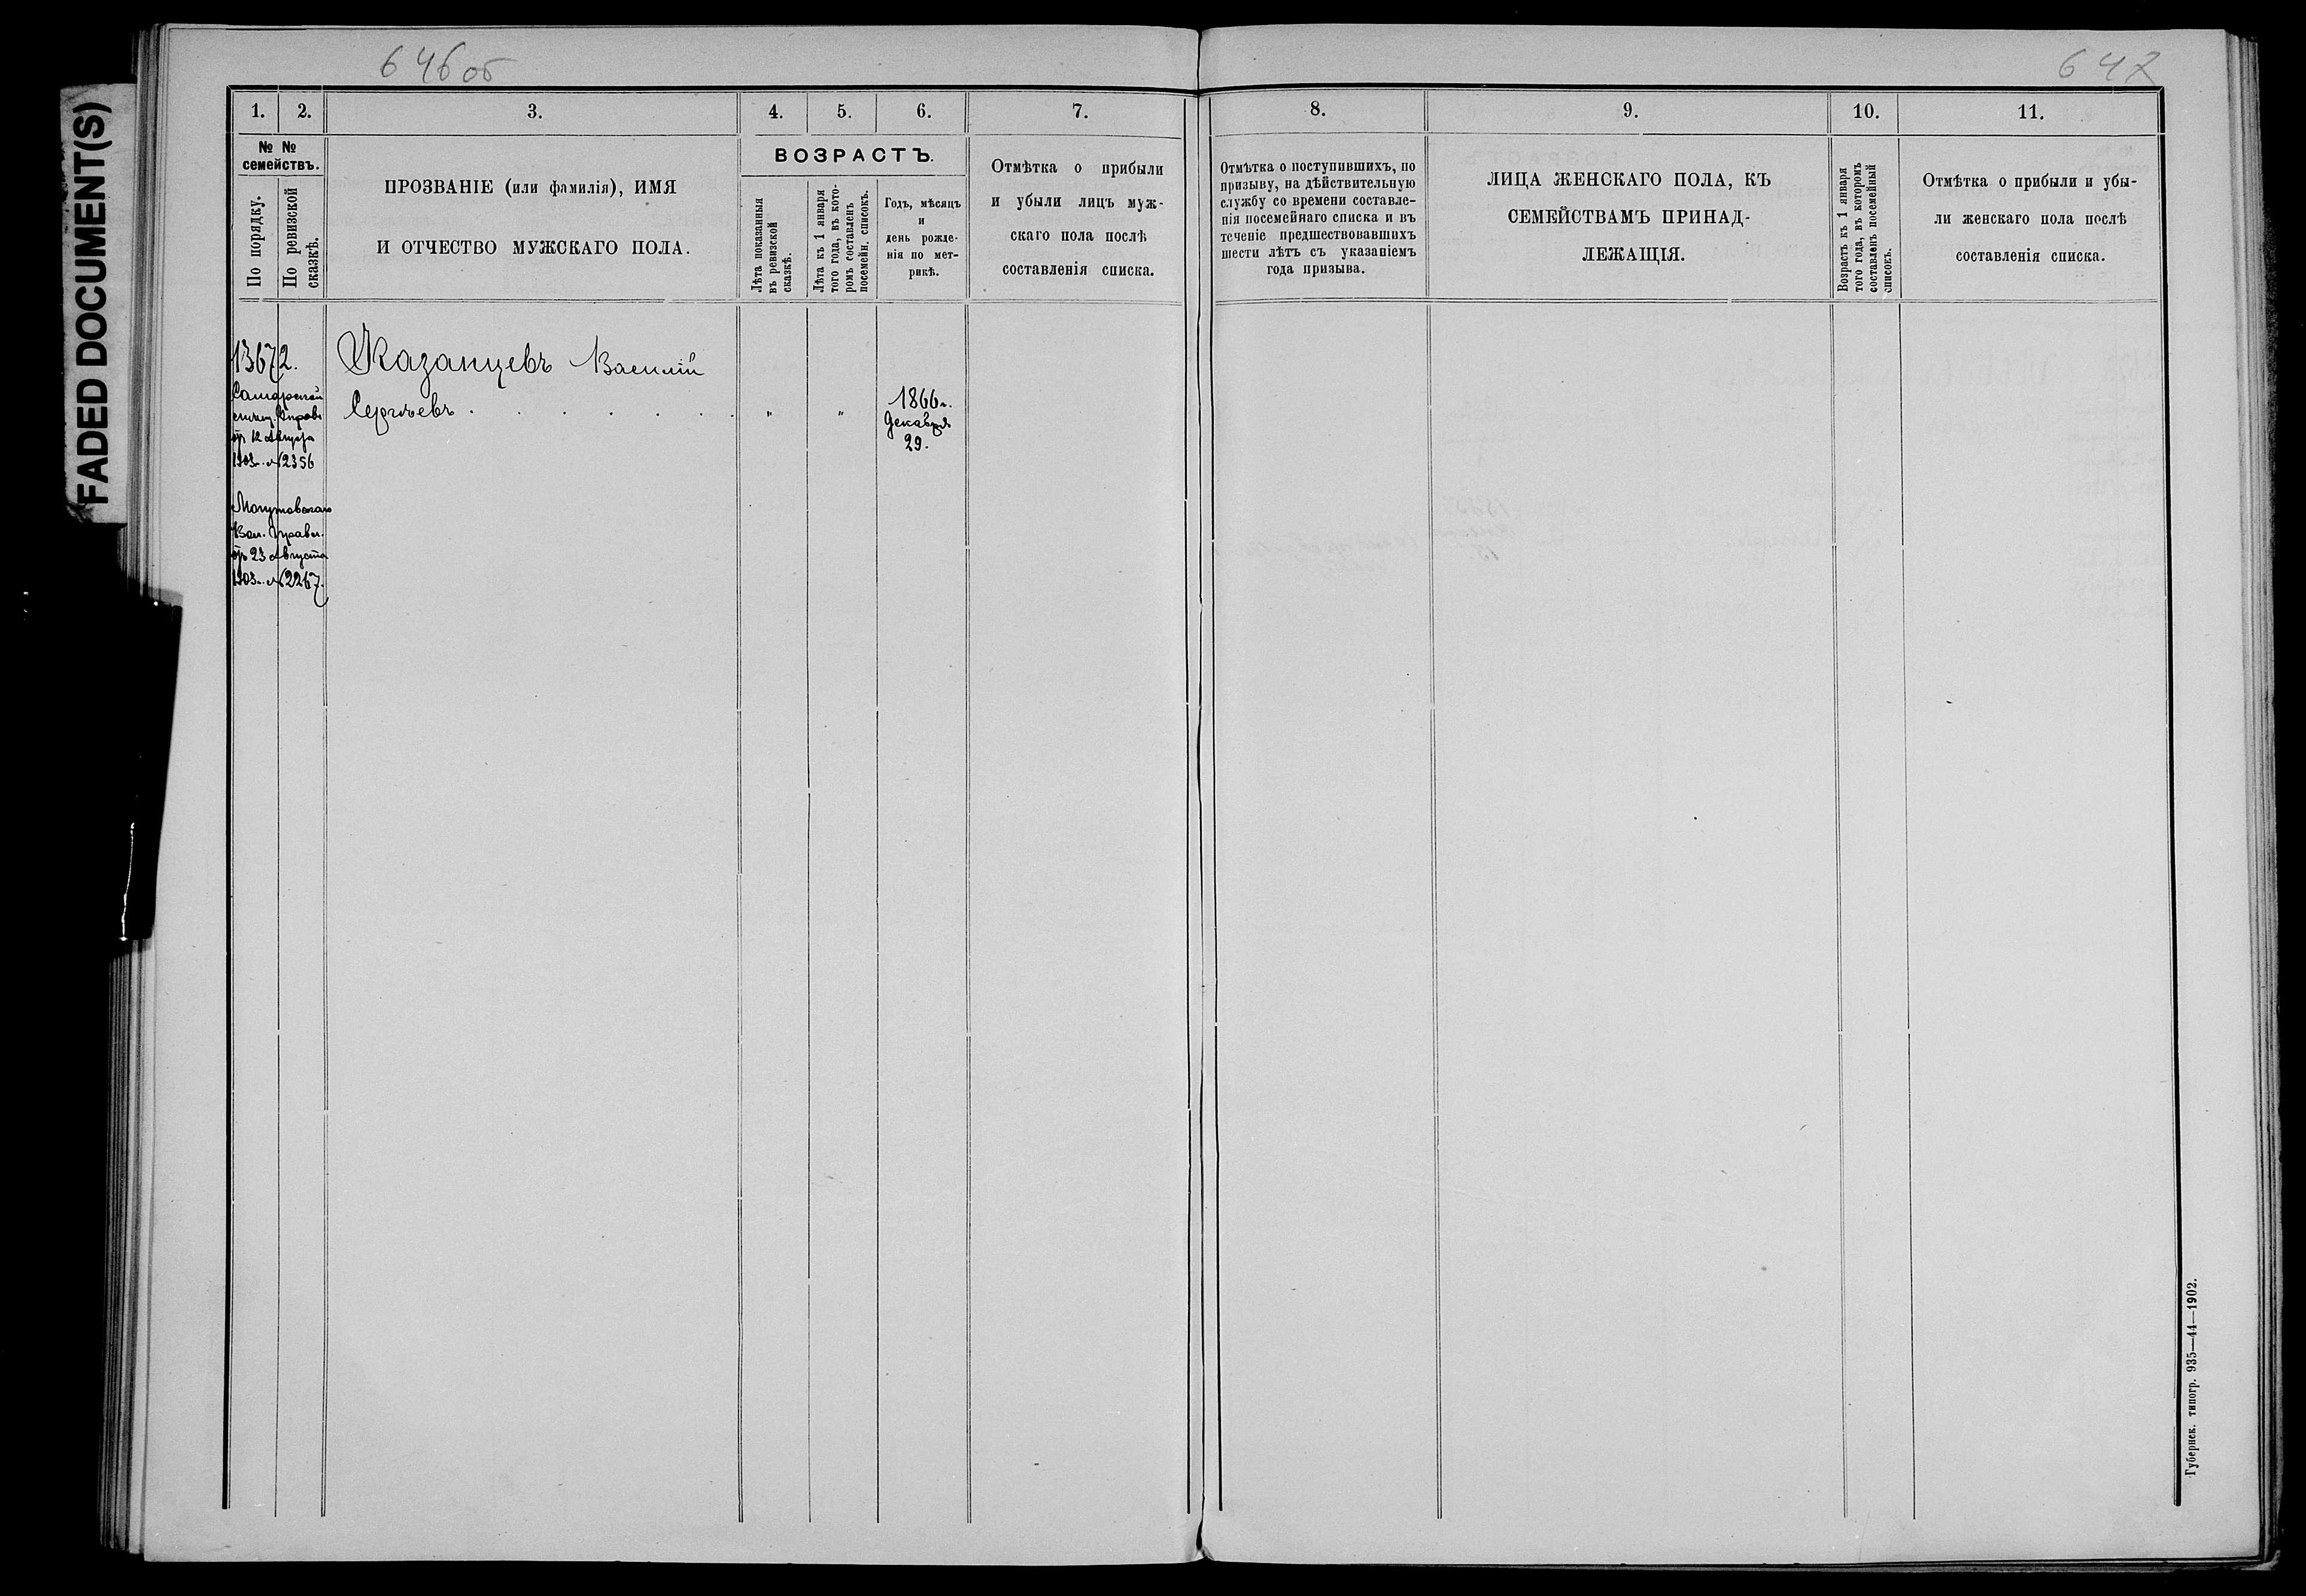 FADED DOCUMENT(S)
646 об
647
1.
2.
3.
4.
5.
6.
7.
8.
9.
10.
11.
№ №
семействъ.
По порядку.
По ревизской
сказкѣ.
ПРОЗВАНІЕ (или фамилія), ИМЯ
И ОТЧЕСТВО МУЖСКАГО ПОЛА.
ВОЗРАСТЪ.
Лѣта показанныя
въ ревизской
сказкѣ.
Лѣта къ 1 января
того года, въ кото-
ромъ составленъ
посемейн. списокъ.
Годъ, мѣсяцъ
и
день рожде-
нія по мет-
рикѣ.
Отмѣтка о прибыли
и убыли лицъ муж-
скаго пола послѣ
составленія списка.
Отмѣтка о поступившихъ, по
призыву, на дѣйствительную
службу со времени составле-
нія посемейнаго списка и въ
теченіе предшествовавшихъ
шести лѣтъ съ указаніемъ
года призыва.
ЛИЦА ЖЕНСКАГО ПОЛА, КЪ
СЕМЕЙСТВАМЪ ПРИНАД-
ЛЕЖАЩІЯ.
Возрастъ къ 1 января
того года, въ которомъ
составленъ посемейный
списокъ.
Отмѣтка о прибыли и убы-
ли женскаго пола послѣ
составленія списка.
13672.
Казанцевъ Василій
Сергѣевъ . . . . . . " "
1866 г.
Декабря
29.
Самарской
от 12 Августа
1903 г. № 2356
Вол. Правл.
от 23 Августа
1903 г. № 2267.
Губернск. типогр. 935—44—1902.